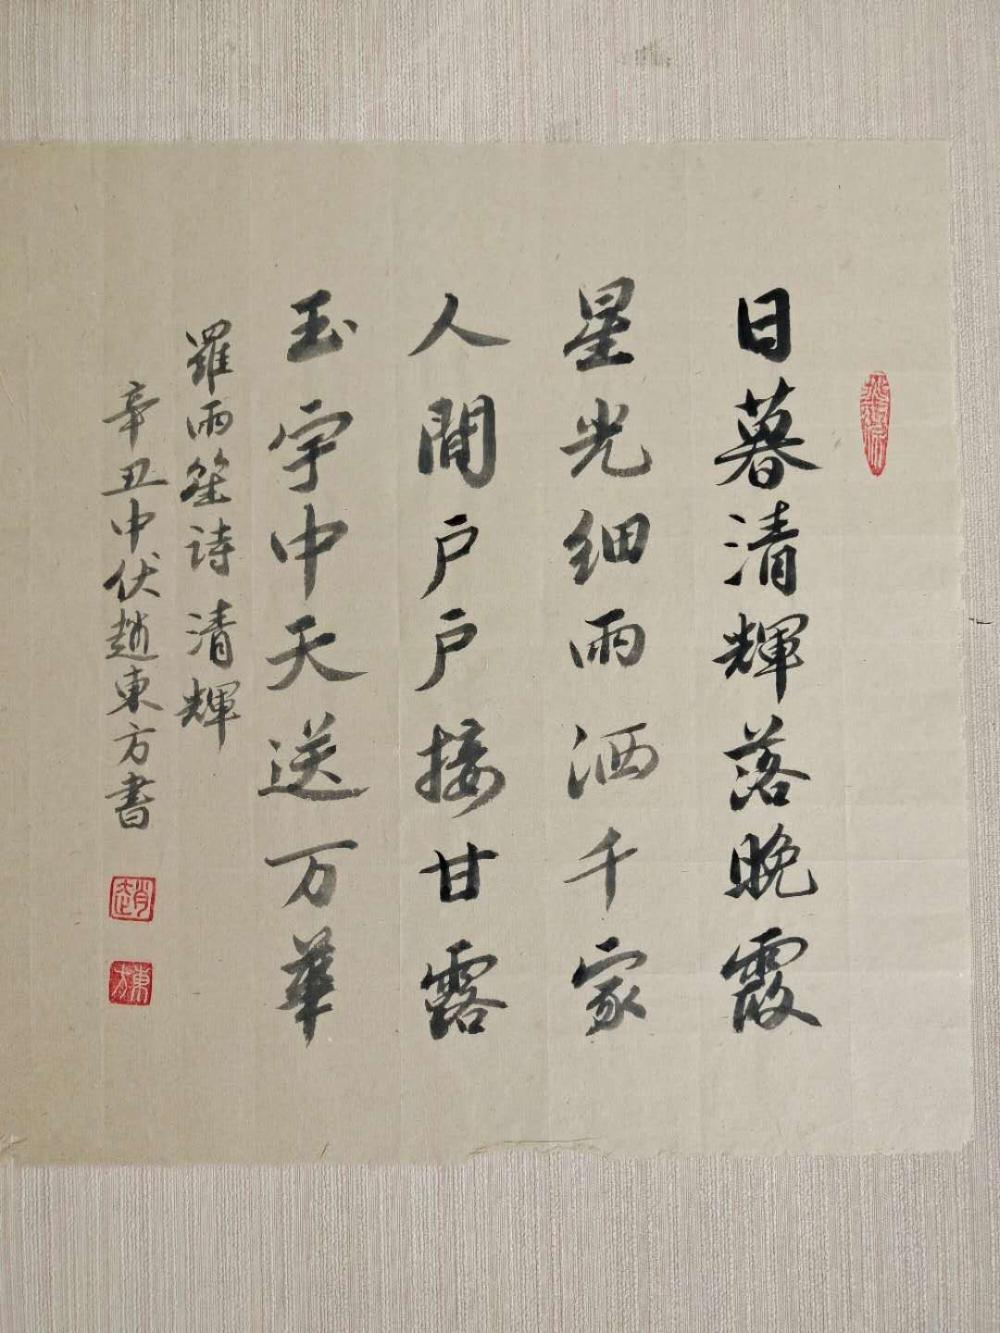 日暮清輝落晚霞
星光细雨洒千家
人間户户接甘露
玉宇中天送万華
羅雨笙诗清輝
辛丑中伏趙東方書